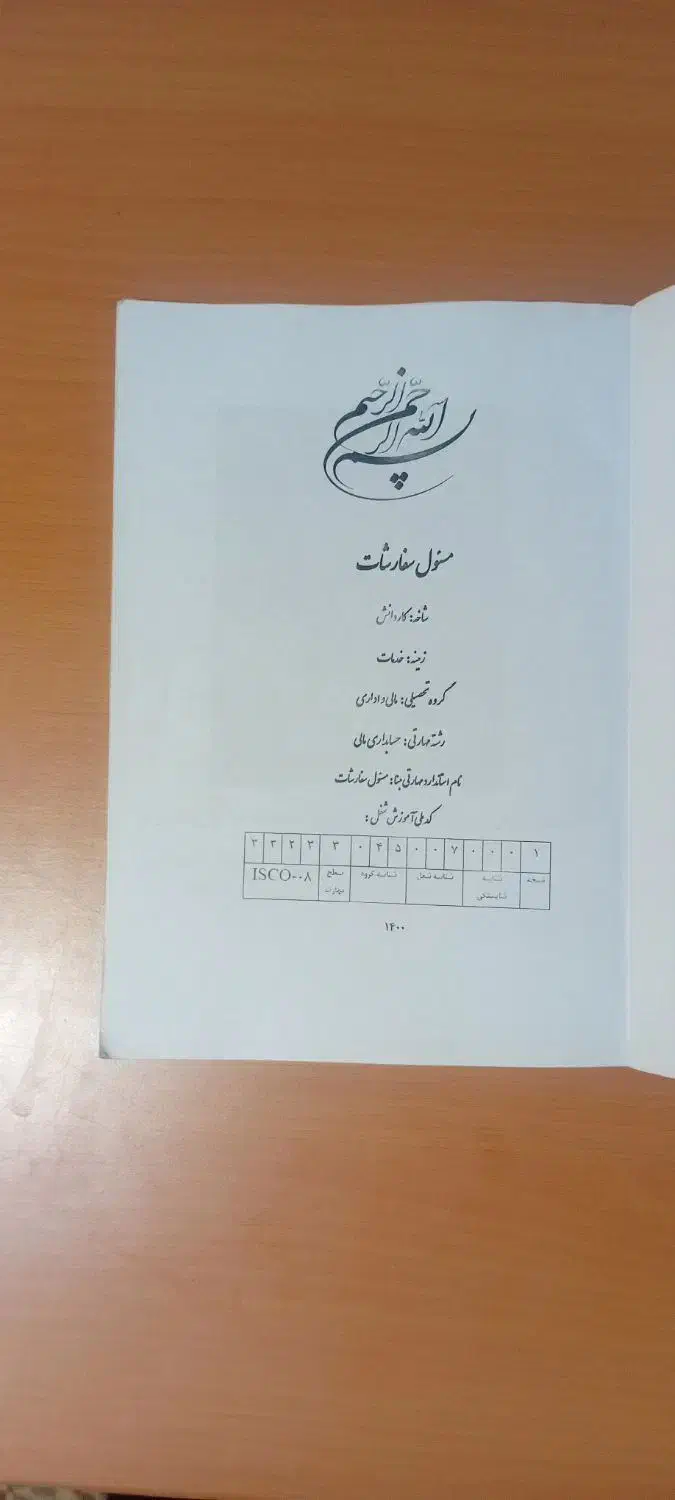 بسم الله الرحمن الرحیم
مسئول سفارشات
شاخه: کاردانش
زمینه: خدمات
گروه تحصیلی: مالی و اداری
رشته مهارتی: حسابداری مالی
نام استاندارد مهارتی مبنا: مسئول سفارشات
کد ملی آموزش شغل:
۳ ۳ ۲ ۳ ۳ ۰ ۴ ۵ ۰ ۰ ۷ ۰ ۰ ۰ ۱
ISCO-۰۸ سطح مهارت شناسه گروه شناسه شغل شناسه شایستگی نسخه
۱۴۰۰